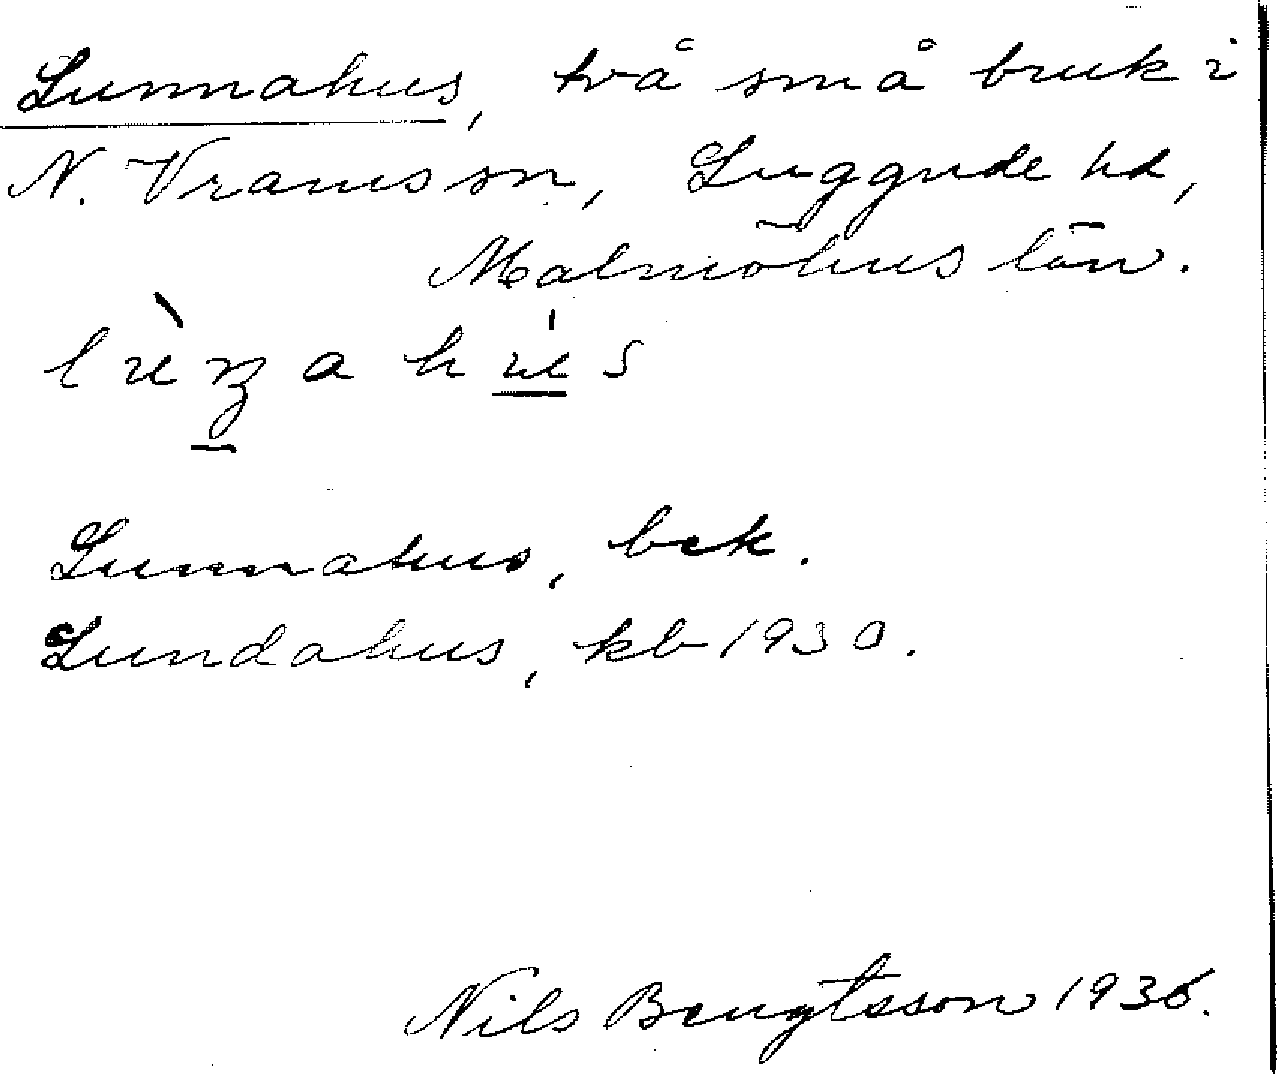 Lunnahus, två små bruk i
N. Vrams sn, Luggude hd,
Malmöhus län.
Lunnahus, bek.
Lundahus, kb 1930.
Nils Bengtsson 1936.